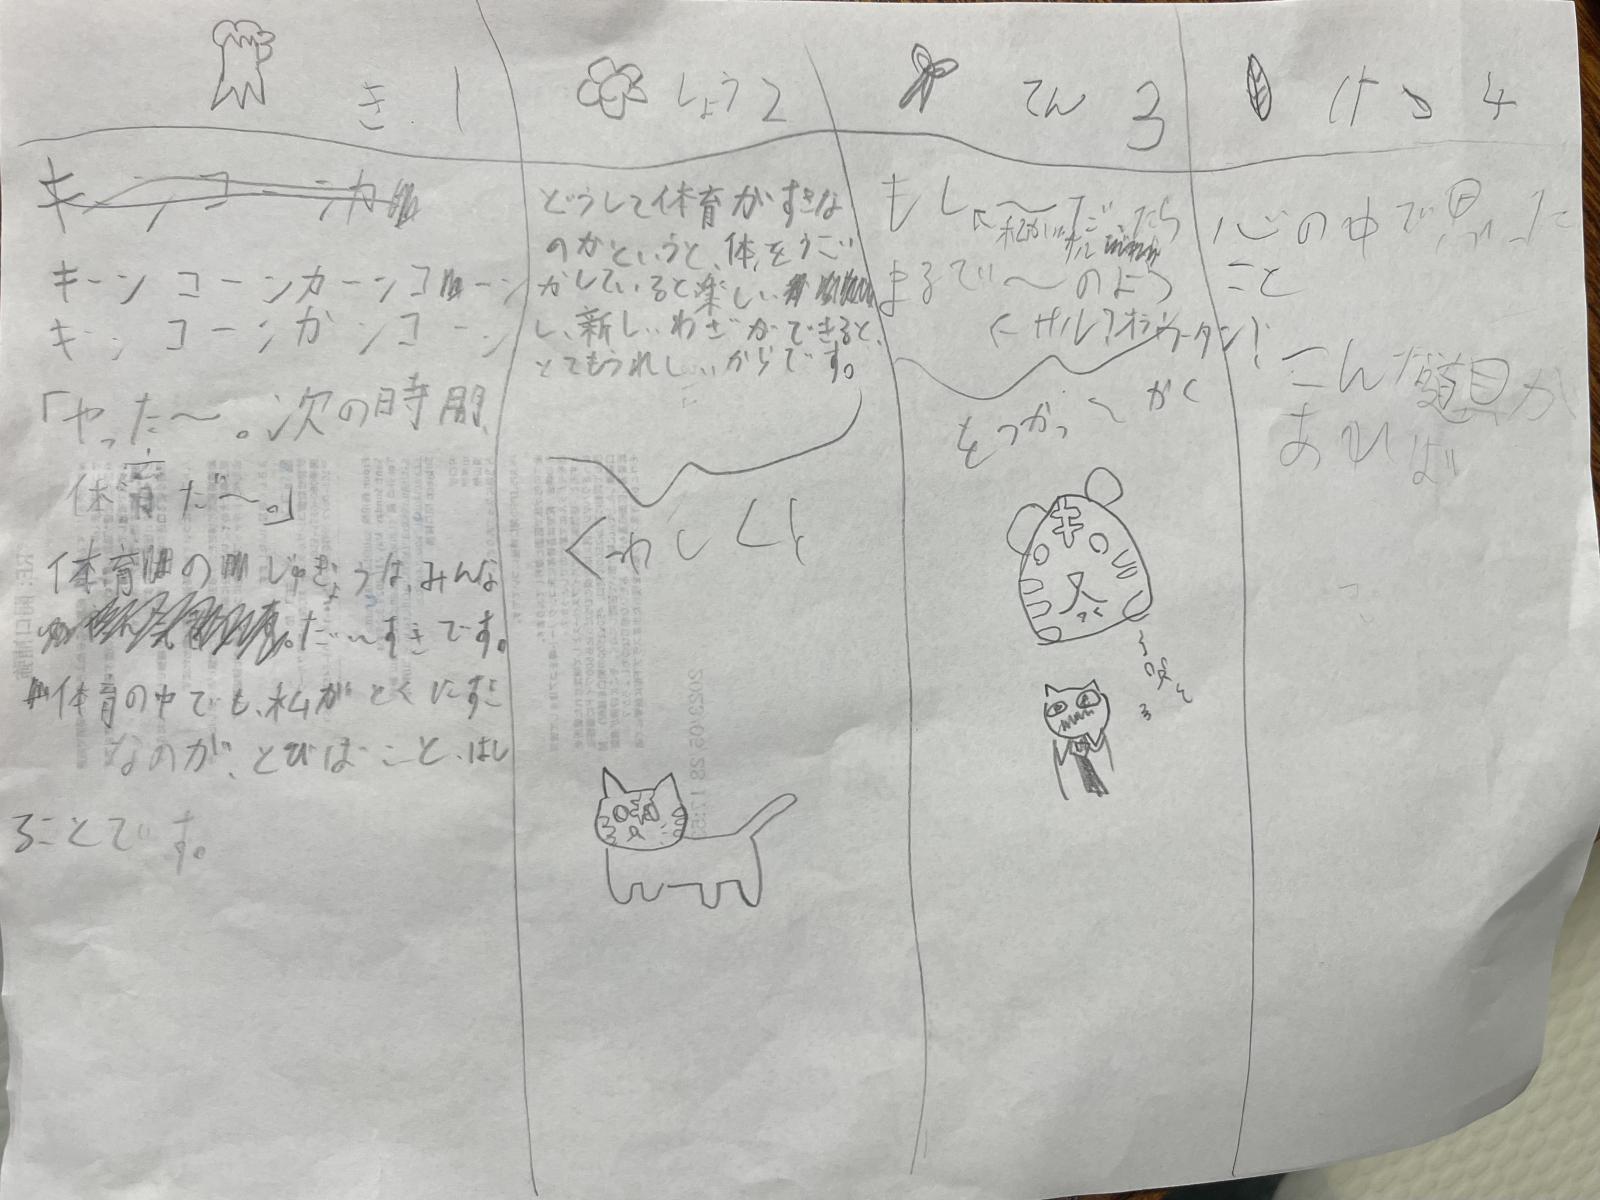 き 1
キーンコーンカ
キーン コーンカーンコーン
キーン コーンカンコーン
「やった〜。次の時間、
体育だ〜。」
体育のじゅぎょうは、みんな
だいすきです。
体育の中でも、私がとくにすき
なのが、とびばこと、はし
ることです。
しょう 2
どうして体育がすきな
のかというと、体をうご
かしていると楽しい
し、新しいわざができると、
とてもうれしいからです。
くわしくと
てん 3
もし〜だったら
私がサル
まるで〜のよう
サル?オラウータン?
をつかって かく
けつ 4
心の中で思った
こと
こんな道具が
あれば
2023/05/28 17:5